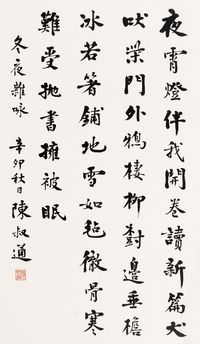 夜霄燈伴我開卷讀新篇犬
吠柴門外鴉棲柳樹邊垂檐
冰若箸鋪地雪如毡徹骨寒
難受拋書擁被眠
冬夜雜咏 辛卯秋日陳叔通